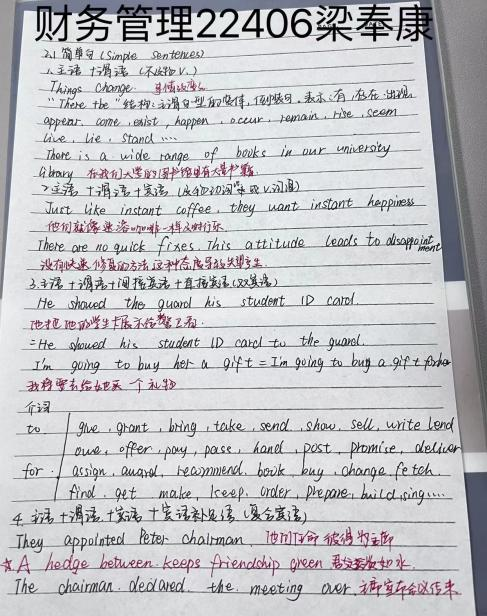 财务管理22406梁奉康
2.1 简单句 (Simple Sentences)
1. 主语 + 谓语 (不及物 v.)
Things change. 事情改变
"There be" 结构: 主谓句型的变体, 倒装句. 表示: 有, 存在, 出现
appear. come, exist, happen, occur, remain, rise, seem
live, lie, stand ....
There is a wide range of books in our university
library 在我们大学的图书馆里有大量书籍
2. 主语 + 谓语 + 宾语 (及物动词或 v.词组)
Just like instant coffee, they want instant happiness
他们就像速溶咖啡一样及时行乐
There are no quick fixes. This attitude leads to disappointment
没有快速修复的方法这种态度导致失望
3. 主语 + 谓语 + 间接宾语 + 直接宾语 (双宾语)
He showed the guard his student ID card.
他把他的学生卡展示给警卫看.
= He showed his student ID card to the guard.
I'm going to buy her a gift = I'm going to buy a gift for her
我将要去给她买一个礼物
介词
to give, grant, bring, take, send, show, sell, write lend
owe, offer, pay, pass, hand, post, promise, deliver
for. assign, award, recommend, book, buy, change, fetch.
find, get make, keep, order, prepare, build, sing....
4. 主语 + 谓语 + 宾语 + 宾语补足语 (复合宾语)
They appointed Peter chairman. 他们任命彼得为主席
☆ A hedge between keeps friendship green 君子之交淡如水.
The chairman declared the meeting over 主席宣布会议结束